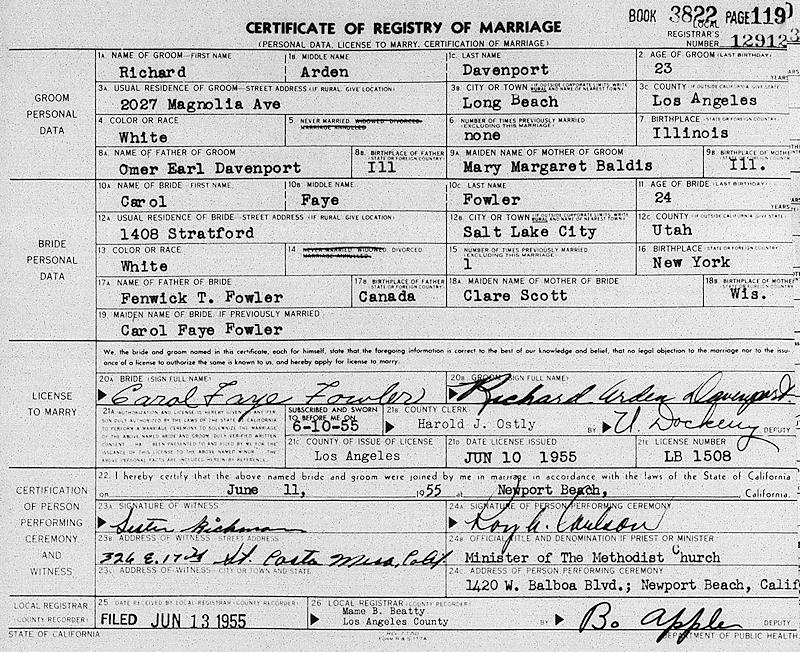 BOOK 3822 PAGE 119
CERTIFICATE OF REGISTRY OF MARRIAGE
LOCAL REGISTRAR'S NUMBER 12912
(PERSONAL DATA, LICENSE TO MARRY, CERTIFICATION OF MARRIAGE)
GROOM PERSONAL DATA
1A. NAME OF GROOM—FIRST NAME 1B. MIDDLE NAME 1C. LAST NAME 2. AGE OF GROOM (LAST BIRTHDAY)
Richard Arden Davenport 23 YEARS
3A. USUAL RESIDENCE OF GROOM—STREET ADDRESS (IF RURAL, GIVE LOCATION) 3B. CITY OR TOWN (IF OUTSIDE CORPORATE LIMITS, WRITE RURAL AND NAME OF NEAREST TOWN) 3C. COUNTY (IF OUTSIDE CALIFORNIA, GIVE STATE)
2027 Magnolia Ave Long Beach Los Angeles
4. COLOR OR RACE 5. NEVER MARRIED WIDOWED DIVORCED MARRIAGE ANNULLED 6. NUMBER OF TIMES PREVIOUSLY MARRIED (EXCLUDING THIS MARRIAGE) 7. BIRTHPLACE (STATE OR FOREIGN COUNTRY)
White none Illinois
8A. NAME OF FATHER OF GROOM 8B. BIRTHPLACE OF FATHER (STATE OR FOREIGN COUNTRY) 9A. MAIDEN NAME OF MOTHER OF GROOM 9B. BIRTHPLACE OF MOTHER (STATE OR FOREIGN COUNTRY)
Omer Earl Davenport Ill Mary Margaret Baldis Ill.
BRIDE PERSONAL DATA
10A. NAME OF BRIDE—FIRST NAME 10B. MIDDLE NAME 10C. LAST NAME 11. AGE OF BRIDE (LAST BIRTHDAY)
Carol Faye Fowler 24 YEARS
12A. USUAL RESIDENCE OF BRIDE—STREET ADDRESS (IF RURAL, GIVE LOCATION) 12B. CITY OR TOWN (IF OUTSIDE CORPORATE LIMITS, WRITE RURAL AND NAME OF NEAREST TOWN) 12C. COUNTY (IF OUTSIDE CALIFORNIA, GIVE STATE)
1408 Stratford Salt Lake City Utah
13. COLOR OR RACE 14. NEVER MARRIED WIDOWED DIVORCED MARRIAGE ANNULLED 15. NUMBER OF TIMES PREVIOUSLY MARRIED (EXCLUDING THIS MARRIAGE) 16. BIRTHPLACE (STATE OR FOREIGN COUNTRY)
White 1 New York
17A. NAME OF FATHER OF BRIDE 17B. BIRTHPLACE OF FATHER (STATE OR FOREIGN COUNTRY) 18A. MAIDEN NAME OF MOTHER OF BRIDE 18B. BIRTHPLACE OF MOTHER (STATE OR FOREIGN COUNTRY)
Fenwick T. Fowler Canada Clare Scott Wis.
19. MAIDEN NAME OF BRIDE, IF PREVIOUSLY MARRIED
Carol Faye Fowler
LICENSE TO MARRY
We, the bride and groom named in this certificate, each for himself, state that the foregoing information is correct to the best of our knowledge and belief, that no legal objection to the marriage nor to the issuance of a license to authorize the same is known to us, and hereby apply for license to marry.
20A. BRIDE (SIGN FULL NAME) 20B. GROOM (SIGN FULL NAME)
Carol Faye Fowler Richard Arden Davenport
21A. AUTHORIZATION AND LICENSE IS HEREBY GIVEN TO ANY PERSON DULY AUTHORIZED BY THE LAWS OF THE STATE OF CALIFORNIA TO PERFORM A MARRIAGE CEREMONY TO SOLEMNIZE THE MARRIAGE OF THE ABOVE NAMED BRIDE AND GROOM.
SUBSCRIBED AND SWORN TO BEFORE ME ON 21B. COUNTY CLERK
6-10-55 Harold J. Ostly BY U. Dockery DEPUTY
21C. COUNTY OF ISSUE OF LICENSE 21D. DATE LICENSE ISSUED 21E. LICENSE NUMBER
Los Angeles JUN 10 1955 LB 1508
CERTIFICATION OF PERSON PERFORMING CEREMONY AND WITNESS
22. I hereby certify that the above named bride and groom were joined by me in marriage in accordance with the laws of the State of California
on June 11, 1955 at Newport Beach, California.
23A. SIGNATURE OF WITNESS 24A. SIGNATURE OF PERSON PERFORMING CEREMONY
Roy A. Carlson
23B. ADDRESS OF WITNESS—STREET ADDRESS 24B. OFFICIAL TITLE AND DENOMINATION IF PRIEST OR MINISTER
326 E. 17th St. Costa Mesa, Calif. Minister of The Methodist Church
23C. ADDRESS OF WITNESS—CITY OR TOWN AND STATE 24C. ADDRESS OF PERSON PERFORMING CEREMONY
1420 W. Balboa Blvd.; Newport Beach, Calif
LOCAL REGISTRAR (COUNTY RECORDER)
25. DATE RECEIVED BY LOCAL REGISTRAR (COUNTY RECORDER) 26. LOCAL REGISTRAR (COUNTY RECORDER)
FILED JUN 13 1955 Mame B. Beatty
Los Angeles County BY Bo Apple DEPUTY
STATE OF CALIFORNIA DEPARTMENT OF PUBLIC HEALTH